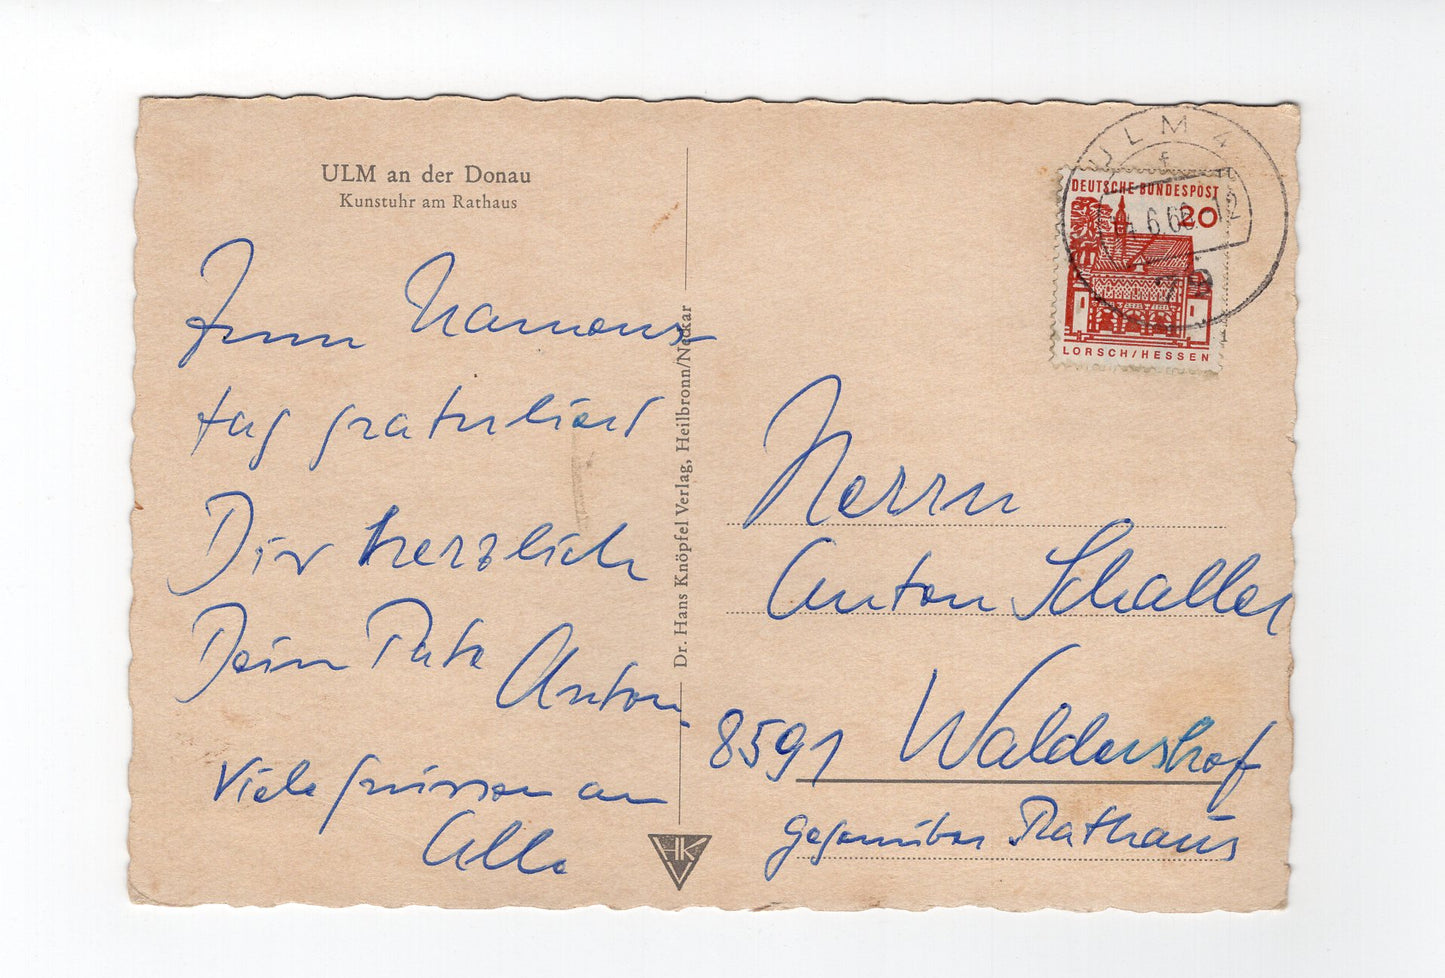 ULM an der Donau
Kunstuhr am Rathaus
Zum Namens
tag gratuliert
Dir herzlich
Dein Pate
Anton.
Viele grüssen an
Alle
Dr. Hans Knöpfel Verlag, Heilbronn/Neckar
HKV
ULM
DEUTSCHE BUNDESPOST
20
6.66
LORSCH/HESSEN
Herrn
Anton Schaller
8591 Waldershof
gegenüber Rathaus